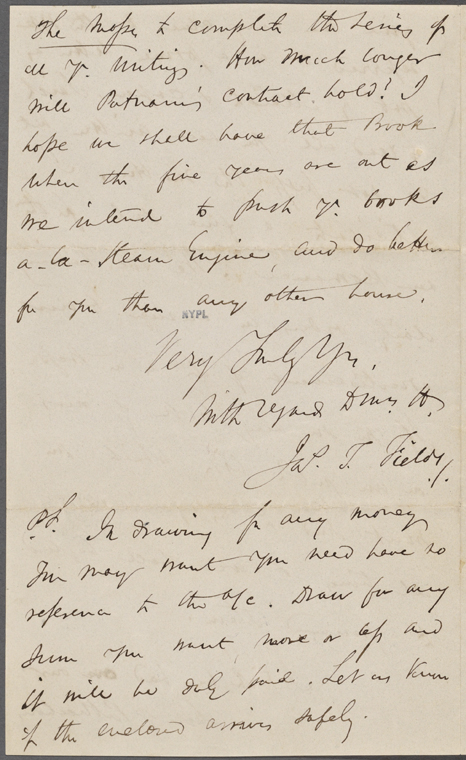 The Mosses to complete the series of
all yr. writings. How much longer
will Putnam's contract hold? I
hope we shall have that Book
when the five years are out as
we intend to push yr. books
a-la-Steam Engine, and do better
for you than any other house.
NYPL
Very Truly Yrs.
With regards to Mrs. H.
Jas. T. Fields.
P.S. In drawing for any money
you may want you need have no
reference to the a/c. Draw for any
sum you want, more or less and
it will be duly paid. Let us know
if the enclosed arrives safely.